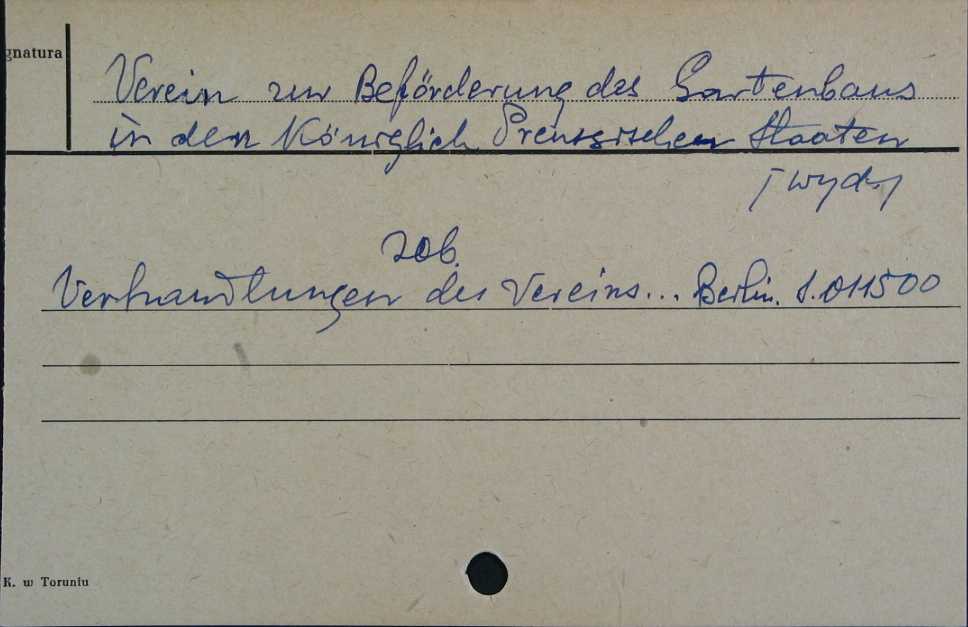 gnatura
Verein zur Beförderung des Gartenbaus
in den Königlich Preussischen Staaten
[wyd.]
zob.
Verhandlungen des Vereins... Berlin. S.011500
K. w Toruniu